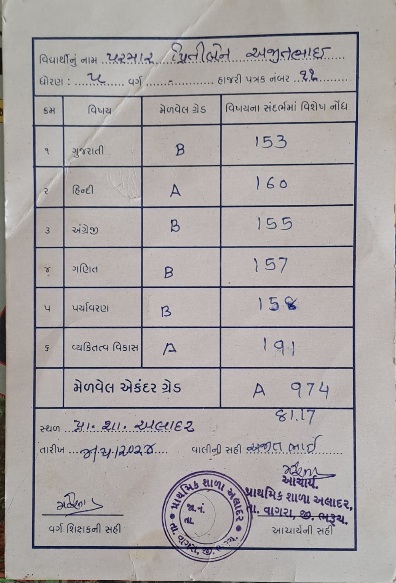 વિદ્યાર્થીનું નામ પરમાર પ્રિતીબેન અજીતભાઇ
ધોરણ : ૫ વર્ગ - હાજરી પત્રક નંબર ૧૧
ક્રમ વિષય મેળવેલ ગ્રેડ વિષયના સંદર્ભમાં વિશેષ નોંધ
૧ ગુજરાતી B 153
૨ હિન્દી A 160
૩ અંગ્રેજી B 155
૪ ગણિત B 157
૫ પર્યાવરણ B 158
૬ વ્યકિતત્વ વિકાસ A 191
મેળવેલ એકંદર ગ્રેડ A 974
81.17
સ્થળ પ્રા. શા. અલાદર
તારીખ વાલીની સહી અજીત ભાઈ
આચાર્ય.
પ્રાથમિક શાળા અલાદર,
તા. વાગરા, જી. ભરૂચ.
વર્ગ શિક્ષકની સહી આચાર્યની સહી
પ્રાથમિક શાળા અલાદર
જા.નં.
તા.
તા. વાગરા, જી. ભરૂચ